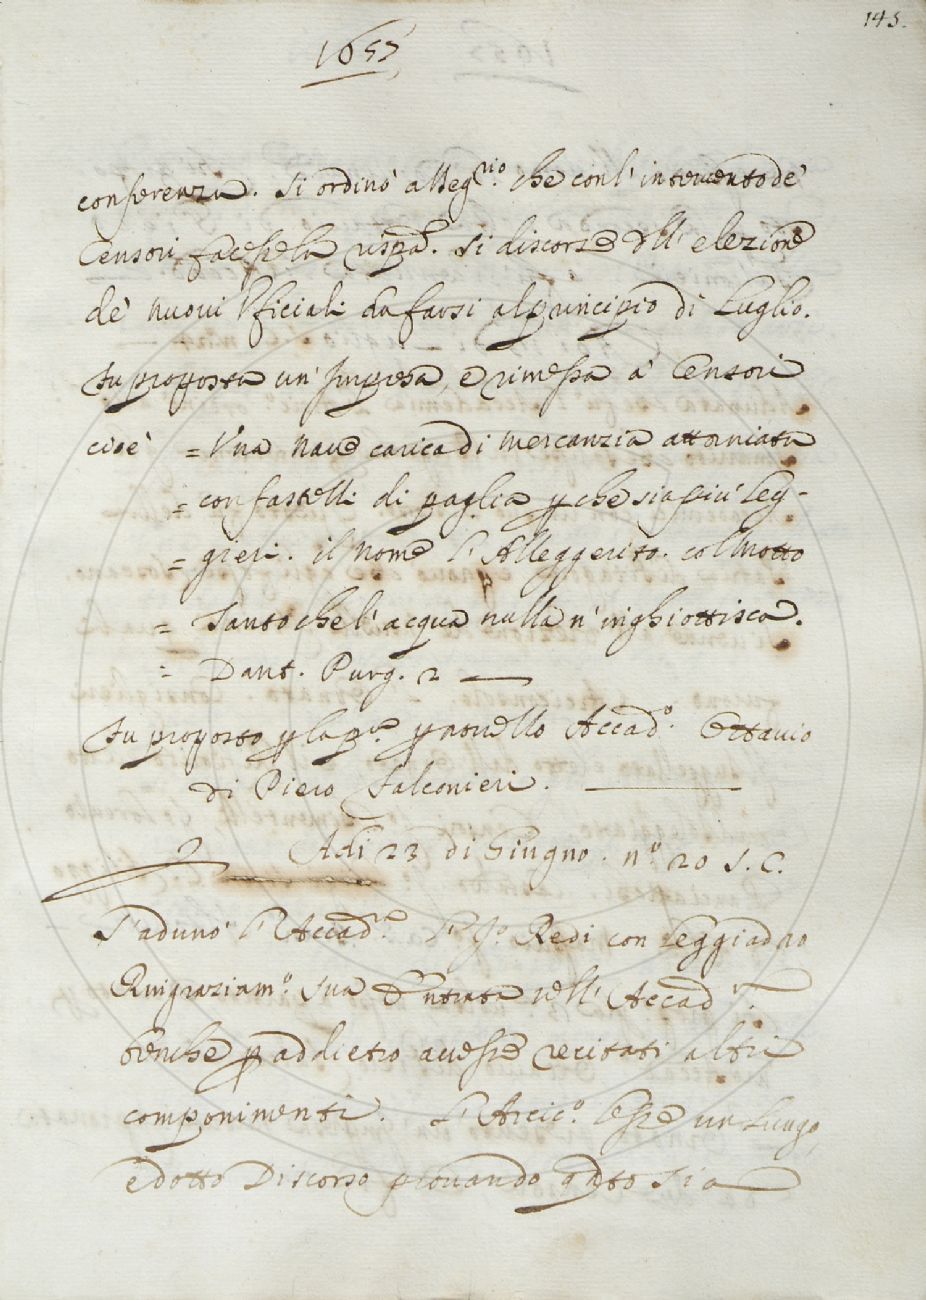 145.
1657
conferenza. Si ordinò al Seg.rio che con l'intervento de'
Censori facesse la rispa. Si discorse dell' elezione
de' nuovi Ufiziali da farsi al principio di Luglio.
Fu proposta un' Impresa, e rimessa a' Censori
cioè = Una Nave carica di mercanzia attorniata
= con fastelli di paglia p che sia più leg-
= gieri. il nome l'Alleggerito. col Motto
= Tanto che l'acqua nulla n'inghiottisca.
= Dant. Purg. 2
Fu proposto p la pa. p novello Accad.o Ottavio
di Piero Falconieri.
Adì 23 di Giugno. n.o 20 S. C.
S'adunò l'Accad.a Il Redi con leggiadro
Ringraziam.o sua Entrata nell' Accad
benche p addietro avesse recitati altri
componimenti. L'Arcic.o lesse un lungo,
e dotto Discorso provando qto sia